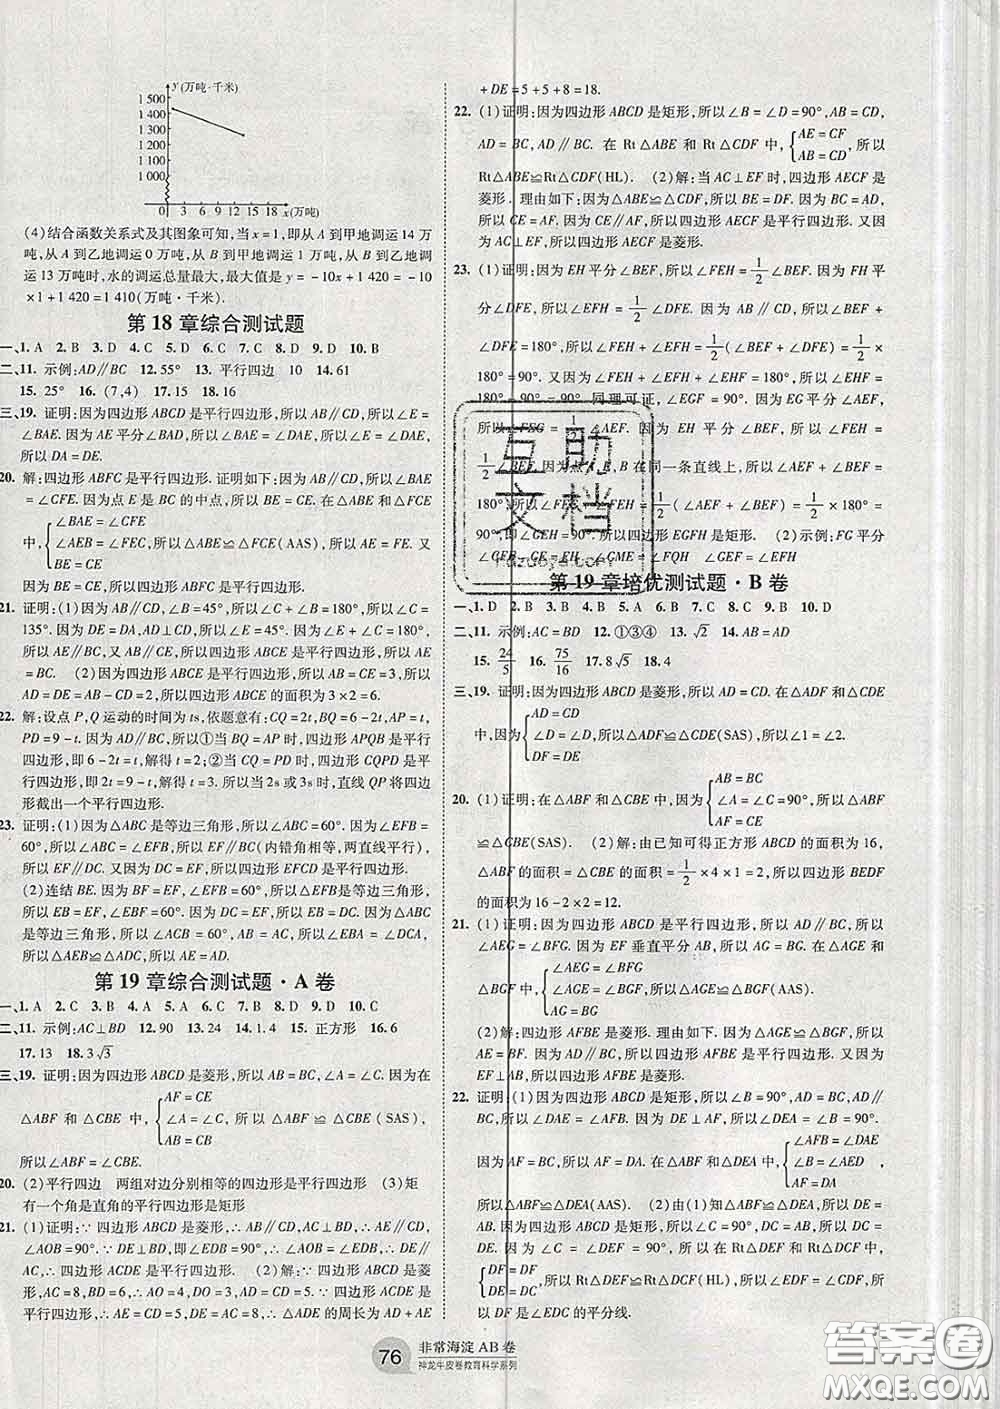 y(万吨·千米)
1 500
1 400
1 300
1 200
1 100
1 000
0 3 6 9 12 15 18 x(万吨)
(4)结合函数关系式及其图象可知,当 x=1,即从 A 到甲地调运 14 万
吨,从 A 到乙地调运 0 万吨,从 B 到甲地调运 1 万吨,从 B 到乙地调
运 13 万吨时,水的调运总量最大,最大值是 y = -10x+1 420= -10
×1+1 420=1 410(万吨·千米).
第 18 章综合测试题
一、1. A 2. B 3. D 4. C 5. C 6. C 7. B 8. D 9. D 10. B
二、11. 示例:AD∥BC 12. 55° 13. 平行四边 10 14. 61
15. 25° 16. (7,4) 17. 15 18. 16
三、19. 证明:因为四边形 ABCD 是平行四边形,所以 AB∥CD,所以∠E =
∠BAE. 因为 AE 平分∠BAD,所以∠BAE = ∠DAE,所以∠E = ∠DAE,
所以 DA = DE.
20. 解:四边形 ABFC 是平行四边形. 证明如下:因为 AB∥CD,所以∠BAE
= ∠CFE. 因为点 E 是 BC 的中点,所以 BE = CE. 在△ABE 和△FCE
∠BAE = ∠CFE
中,∠AEB = ∠FEC,所以△ABE≌△FCE(AAS),所以 AE = FE. 又
BE = CE
因为 BE = CE,所以四边形 ABFC 是平行四边形.
21. 证明:(1)因为 AB∥CD,∠B=45°,所以∠C+∠B=180°,所以∠C=
135°. 因为 DE=DA,AD⊥CD,所以∠E=45°. 因为∠E+∠C=180°,
所以 AE∥BC,又因为 AB∥CE,所以四边形 ABCE 是平行四边形.
(2)因为四边形 ABCE 是平行四边形,所以 AB=CE=3,所以
AD=DE=AB-CD=2,所以四边形 ABCE 的面积为 3×2=6.
22. 解:设点 P,Q 运动的时间为 ts,依题意有:CQ=2t,BQ=6-2t,AP=t,
PD=9-t. 因为 AD∥BC,所以①当 BQ=AP 时,四边形 APQB 是平行
四边形,即 6-2t=t,解得 t=2;②当 CQ=PD 时,四边形 CQPD 是平
行四边形,即 2t=9-t,解得 t=3. 所以当 2s 或 3s 时,直线 QP 将四边
形截出一个平行四边形.
23. 证明:(1)因为△ABC 是等边三角形,所以∠ABC=60°. 因为∠EFB=
60°,所以∠ABC=∠EFB,所以 EF∥BC(内错角相等,两直线平行),
所以 EF∥DC. 又因为 DC=EF,所以四边形 EFCD 是平行四边形.
(2)连结 BE. 因为 BF=EF,∠EFB=60°,所以△EFB 是等边三角形,
所以 EB=EF,∠EBF=60°. 因为 DC=EF,所以 EB=DC. 因为△ABC
是等边三角形,所以∠ACB=60°,AB=AC,所以∠EBF=∠DCA,
所以△AEB≌△ADC,所以 AE=AD.
第 19 章综合测试题·A 卷
一、1. A 2. C 3. B 4. D 5. A 6. C 7. B 8. D 9. D 10. C
二、11. 示例:AC⊥BD 12. 90 13. 24 14. 1.4 15. 正方形 16. 6
17. 13 18. 3√3
三、19. 证明:因为四边形 ABCD 是菱形,所以 AB=CB,∠A=∠C. 因为在
AF = CE
△ABF 和△CBE 中,∠A = ∠C,所以△ABF≌△CBE(SAS),
AB = CB
所以∠ABF=∠CBE.
20. (2)平行四边 两组对边分别相等的四边形是平行四边形 (3)矩
有一个角是直角的平行四边形是矩形
21. (1)证明:∵四边形 ABCD 是菱形,∴AB∥CD,AC⊥BD,∴AE∥CD,
∠AOB=90°. ∵DE⊥BD,即∠EDB=90°,∴∠AOB=∠EDB,∴DE∥
AC,∴四边形 ACDE 是平行四边形. (2)解:∵四边形 ABCD 是菱
形,AC=8,BD=6,∴AO=4,DO=3,AD=CD=5. ∵四边形 ACDE 是
平行四边形,∴AE=CD=5,DE=AC=8,∴△ADE 的周长为 AD+AE
+DE=5+5+8=18.
22. (1)证明:因为四边形 ABCD 是矩形,所以∠B=∠D=90°,AB=CD,
AD=BC,AD∥BC. 在 Rt△ABE 和 Rt△CDF 中,AE=CF,所以
AB=CD
Rt△ABE≌Rt△CDF(HL). (2)解:当 AC⊥EF 时,四边形 AECF 是
菱形. 理由如下:因为△ABE≌△CDF,所以 BE=DF. 因为 BC=AD,
所以 CE=AF. 因为 CE∥AF,所以四边形 AECF 是平行四边形. 又因
为 AC⊥EF,所以四边形 AECF 是菱形.
23. (1)证明:因为 EH 平分∠BEF,所以∠FEH=1/2∠BEF. 因为 FH 平
分∠DFE,所以∠EFH=1/2∠DFE. 因为 AB∥CD,所以∠BEF+
∠DFE=180°,所以∠FEH+∠EFH=1/2(∠BEF+∠DFE)=1/2×
180°=90°. 又因为∠FEH+∠EFH+∠EHF=180°,所以∠EHF=
180°-90°=90°. 同理可证,∠EGF=90°. 因为 EG 平分∠AEF,
所以∠FEG=1/2∠AEF. 因为 EH 平分∠BEF,所以∠FEH=
1/2∠BEF. 因为点 A,E,B 在同一条直线上,所以∠AEF+∠BEF=
180°,所以∠FEG+∠FEH=1/2(∠AEF+∠BEF)=1/2×180°=
90°,即∠GEH=90°. 所以四边形 EGFH 是矩形. (2)示例:FG 平分
∠CFE GE=FH ∠GME=∠FQH ∠GEF=∠EFH
第 19 章培优测试题·B 卷
一、1. D 2. B 3. B 4. B 5. A 6. B 7. C 8. C 9. B 10. D
二、11. 示例:AC=BD 12. ①③④ 13. √2 14. AB=AD
15. 24/5 16. 75/16 17. 8√5 18. 4
三、19. 证明:因为四边形 ABCD 是菱形,所以 AD=CD. 在△ADF 和△CDE
AD=CD
中,因为∠D=∠D,所以△ADF≌△CDE(SAS),所以∠1=∠2.
DF=DE
AB=BC
20. (1)证明:在△ABF 和△CBE 中,因为∠A=∠C=90°,所以△ABF
AF=CE
≌△CBE(SAS). (2)解:由已知可得正方形 ABCD 的面积为 16,
△ABF 的面积=△CBE 的面积=1/2×4×1=2. 所以四边形 BEDF
的面积为 16-2×2=12.
21. (1)证明:因为四边形 ABCD 是平行四边形,所以 AD∥BC,所以
∠AEG=∠BFG. 因为 EF 垂直平分 AB,所以 AG=BG. 在△AGE 和
∠AEG=∠BFG
△BGF 中,∠AGE=∠BGF,所以△AGE≌△BGF(AAS).
AG=BG
(2)解:四边形 AFBE 是菱形. 理由如下. 因为△AGE≌△BGF,所以
AE=BF. 因为 AD∥BC,所以四边形 AFBE 是平行四边形. 又因为
EF⊥AB,所以四边形 AFBE 是菱形.
22. 证明:(1)因为四边形 ABCD 是矩形,所以∠B=90°,AD=BC,AD∥
BC,所以∠DAE=∠AFB. 因为 DE⊥AF,所以∠DEA=∠B=90°.
∠AFB=∠DAE
因为 AF=BC,所以 AF=AD. 在△ABF 和△DEA 中,∠B=∠AED,
AF=DA
所以△ABF≌△DEA(AAS). (2)由(1)知△ABF≌△DEA,所以 DE=
AB. 因为四边形 ABCD 是矩形,所以∠C=90°,AB=DC,所以 DC=
DE. 因为∠C=∠DEF=90°,所以在 Rt△DEF 和 Rt△DCF 中,
DF=DF
DE=DC,所以 Rt△DEF≌Rt△DCF(HL),所以∠EDF=∠CDF,所
以 DF 是∠EDC 的平分线.
76
非常海淀 AB 卷
神龙牛皮卷教育科学系列
互助
文档
答案圈
MXQE.COM